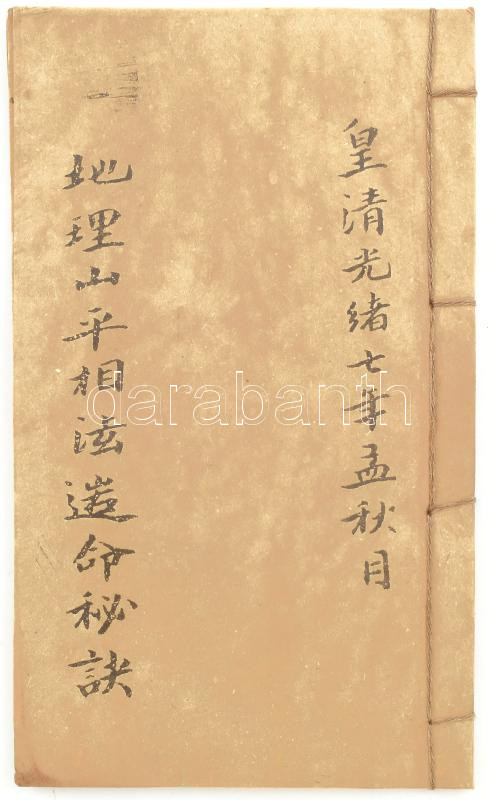 皇清光绪七年孟秋月
地理山平相法造命秘訣
darabanth